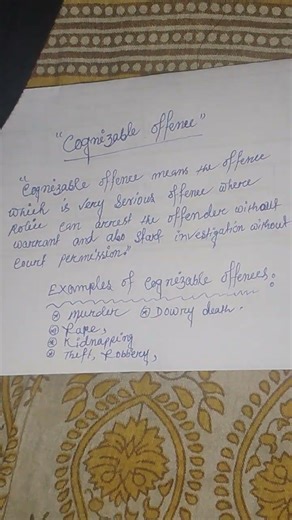 "Cognizable offence"
"Cognizable offence means the offence
which is very serious offence where
Police can arrest the offender without
warrant and also start investigation without
court permission."
Examples of cognizable offences:
⊛ Murder ⊛ Dowry death.
⊛ Rape,
⊛ Kidnapping
⊛ Theft, Robbery,